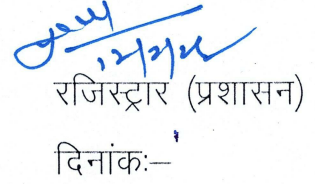 रजिस्ट्रार (प्रशासन)
दिनांकः—